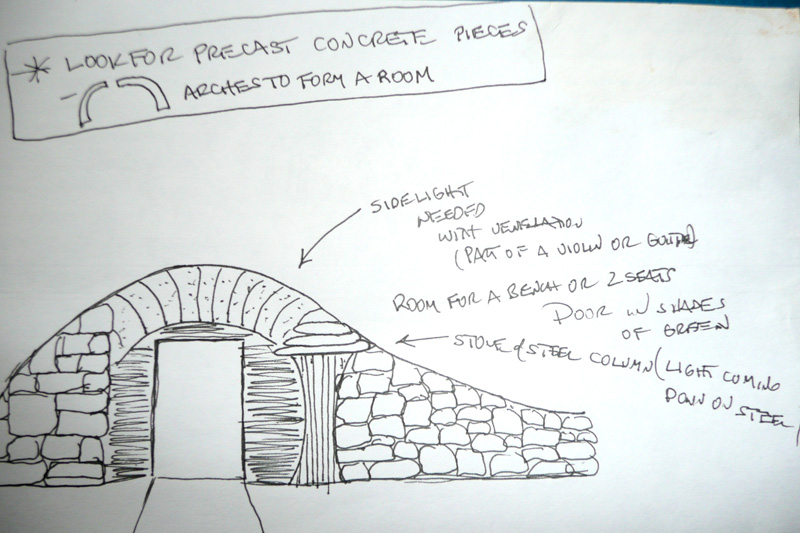 * LOOK FOR PRECAST CONCRETE PIECES
- ARCHES TO FORM A ROOM
SIDELIGHT
NEEDED
WITH VENTILATION
(PART OF A VIOLIN OR GUITAR)
ROOM FOR A BENCH OR 2 SEATS
DOOR IN SHADES
OF GREEN
STONE & STEEL COLUMN (LIGHT COMING
DOWN ON STEEL